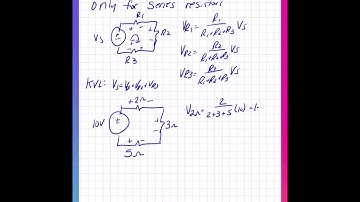 only for series resistor
R1
VS
R2
R3
VR1 = R1 / R1+R2+R3 VS
VR2 = R2 / R1+R2+R3 VS
VR3 = R3 / R1+R2+R3 VS
KVL: VS=VR1+VR2+VR3
+2Ω-
10V
3Ω
5Ω
V2Ω = 2 / 2+3+5 (10) =